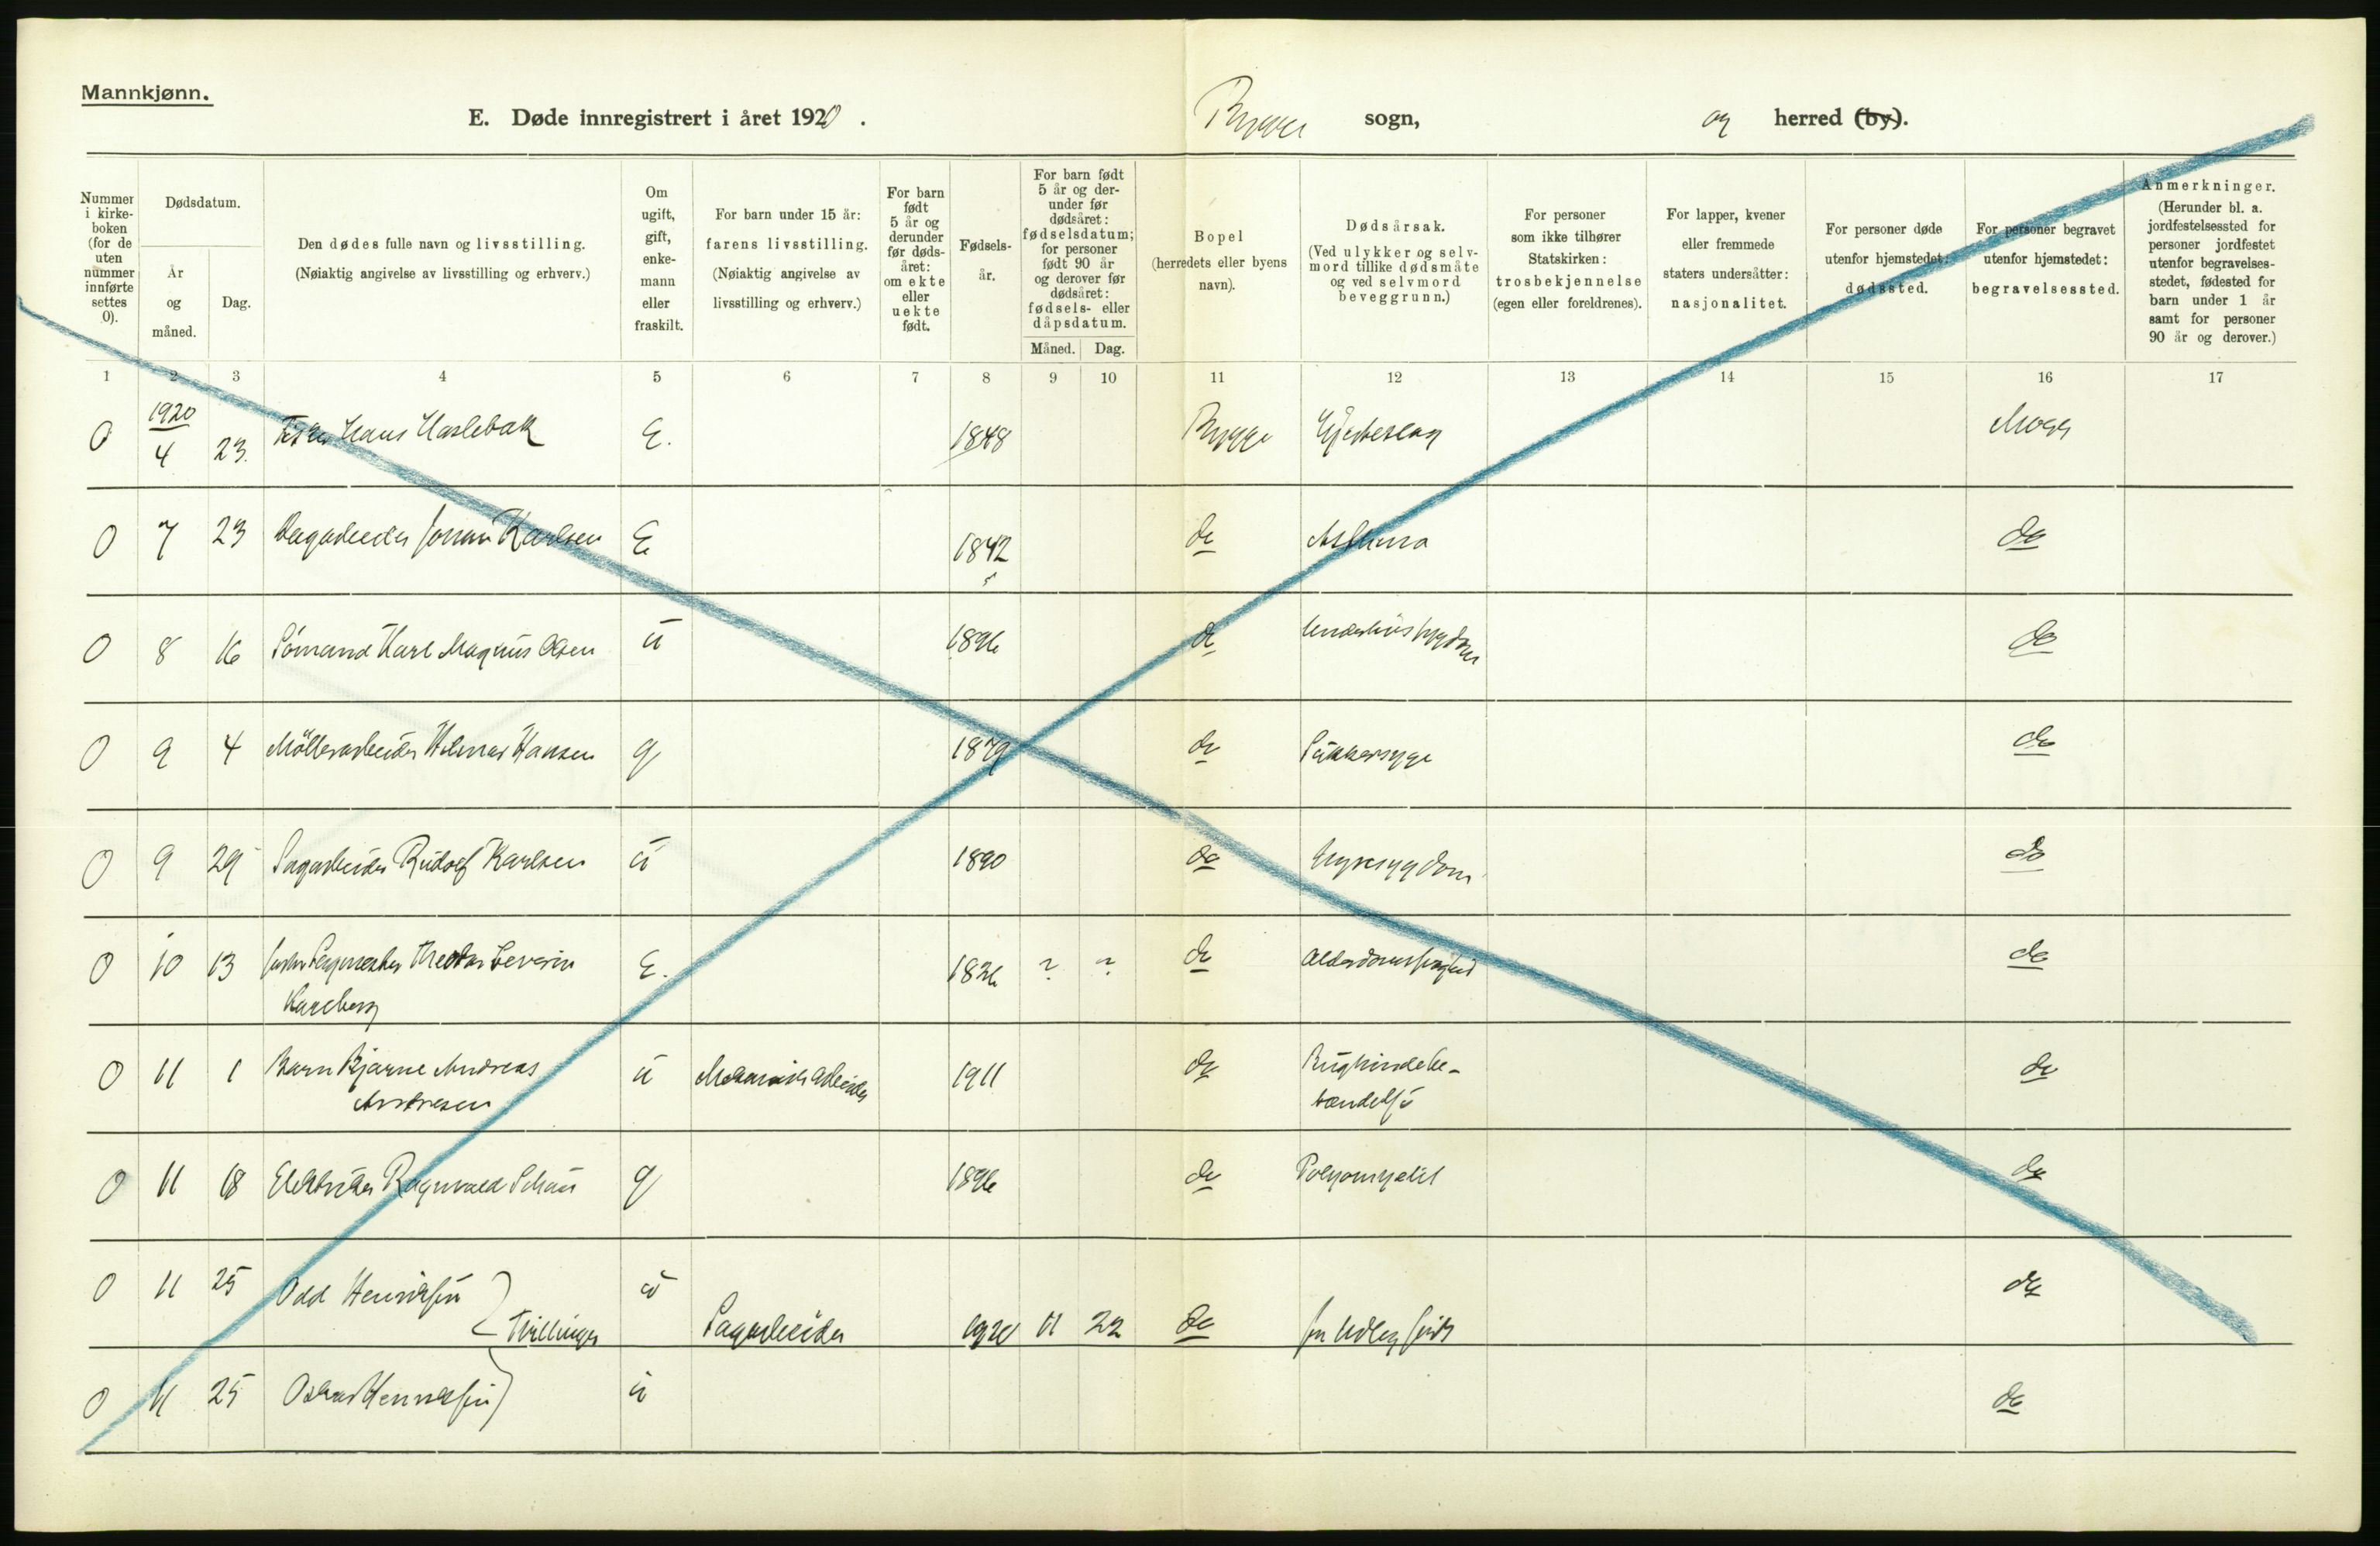 Mannkjønn.
E. Døde innregistrert i året 1920. Rygge sogn, og herred (by).
Nummer i kirke-boken (for de uten nummer innførte settes 0).
Dødsdatum.
År og måned.
Dag.
Den dødes fulle navn og livsstilling.
(Nøiaktig angivelse av livsstilling og erhverv.)
Om ugift, gift, enke-mann eller fraskilt.
For barn under 15 år:
farens livsstilling.
(Nøiaktig angivelse av livsstilling og erhverv.)
For barn født 5 år og derunder før døds-året: om ekte eller uekte født.
Fødsels-år.
For barn født 5 år og der-under før dødsåret: fødselsdatum; for personer født 90 år og derover før dødsåret: fødsels- eller dåpsdatum.
Måned. Dag.
Bopel
(herredets eller byens navn).
Dødsårsak.
(Ved ulykker og selv-mord tillike dødsmåte og ved selvmord beveggrunn.)
For personer som ikke tilhører Statskirken:
trosbekjennelse
(egen eller foreldrenes).
For lapper, kvener eller fremmede staters undersåtter:
nasjonalitet.
For personer døde utenfor hjemstedet:
dødssted.
For personer begravet utenfor hjemstedet:
begravelsessted.
Anmerkninger.
(Herunder bl. a. jordfestelsessted for personer jordfestet utenfor begravelses-stedet, fødested for barn under 1 år samt for personer 90 år og derover.)
1 2 3 4 5 6 7 8 9 10 11 12 13 14 15 16 17
0 1920 4 23 Hans Haslebak E. 1848 Rygge Hjerteslag Moss
0 7 23 Johan Karlsen E 1842 do Asthma do
0 8 16 Sømand Karl Magnus Olsen u 1896 do do
0 9 4 Møllearbeider Hilmar Hansen g 1879 do Sukkersyge do
0 9 29 Sagarbeider Rudolf Karlsen u 1890 do do
0 10 13 Theodor Severin
Karlberg E. 1826 ? ? do do
0 11 1 Barn Bjarne Andreas
Andresen u Mekanisk arbeider 1911 do Bughindebe-
tændelse do
0 11 18 Elektriker Ragnvald g 1896 do Polyomyelit do
0 11 25 Odd Henriksen u do
Tvillinger Sagarbeider 1920 11 22 do for tidlig født
0 11 25 Oskar Henriksen u do